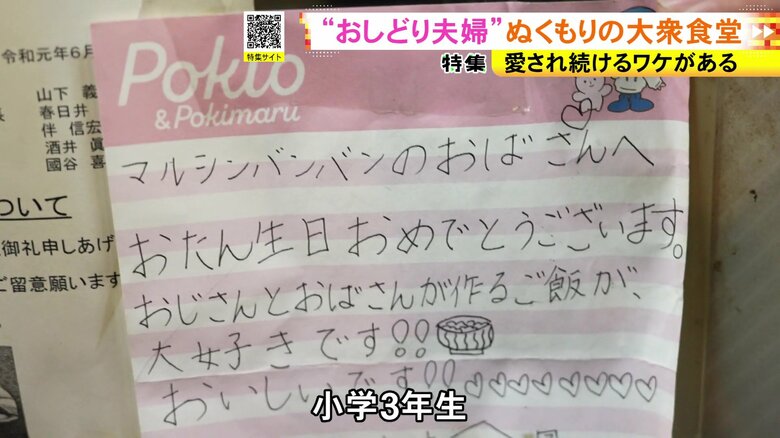 "おしどり夫婦"ぬくもりの大衆食堂
特集サイト
特集 愛され続けるワケがある
令和元年6月
山下 義
春日井
伴 信宏
酒井 眞
國谷 喜
ついて
御礼申しあげ
ご留意願います
Pokio
& Pokimaru
マルシンバンバンのおばさんへ
おたん生日おめでとうございます。
おじさんとおばさんが作るご飯が、
大好きです!!
おいしいです!!♡♡♡♡♡♡♡♡
小学3年生